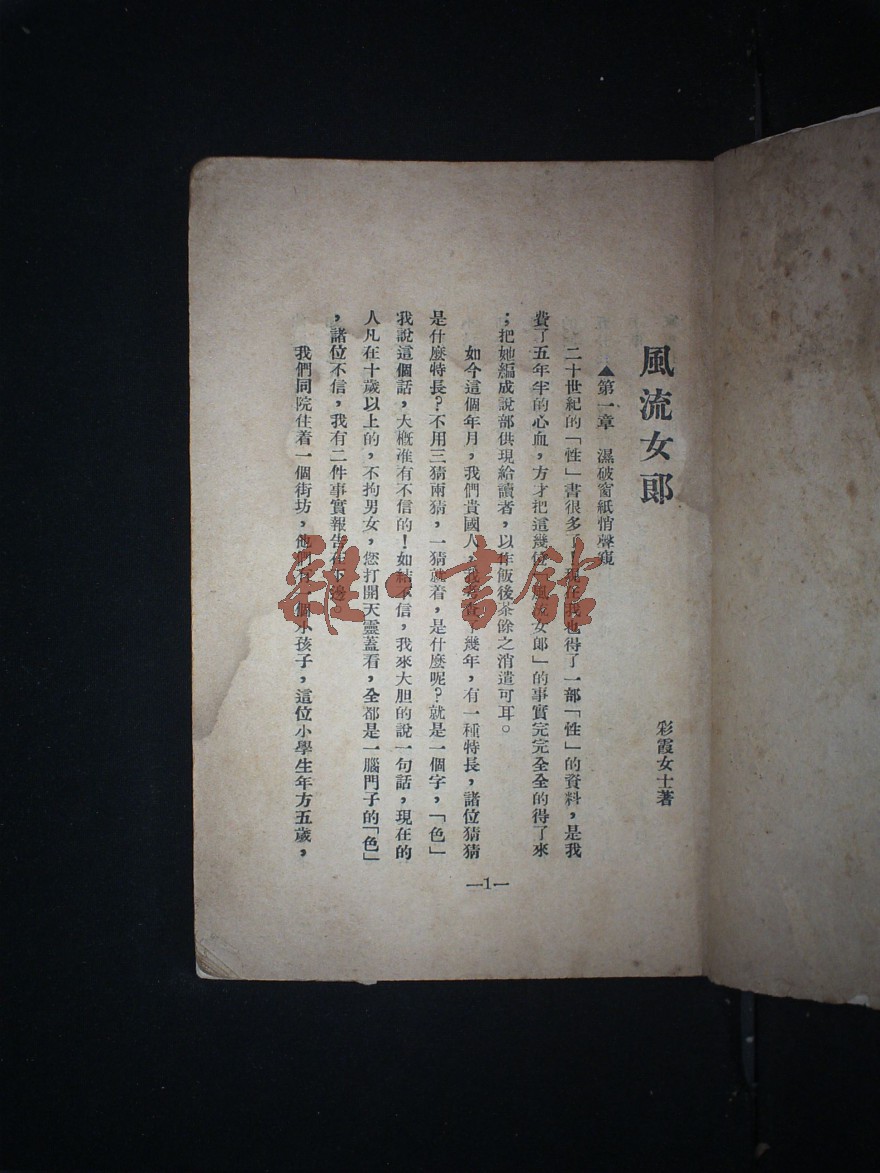 風流女郞
彩霞女士著
▲第一章　濕破窗紙悄聲窺
二十世紀的「性」書很多了！現在我也得了一部「性」的資料，是我
費了五年半的心血，方才把這幾位「風流女郞」的事實完完全全的得了來
；把她編成說部供現給讀者，以作飯後茶餘之消遣可耳。
如今這個年月，我們貴國人，我考查了幾年，有一種特長，諸位猜猜
是什麼特長？不用三猜兩猜，一猜就着，是什麼呢？就是一個字，「色」
我說這個話，大概准有不信的！如結不信，我來大胆的說一句話，現在的
人凡在十歲以上的，不拘男女，您打開天靈蓋看，全都是一腦門子的「色」
，諸位不信，我有二件事實報告在下邊。
我們同院住着一個街坊，他們有一個小孩子，這位小學生年方五歲，
—1—
雜·書館